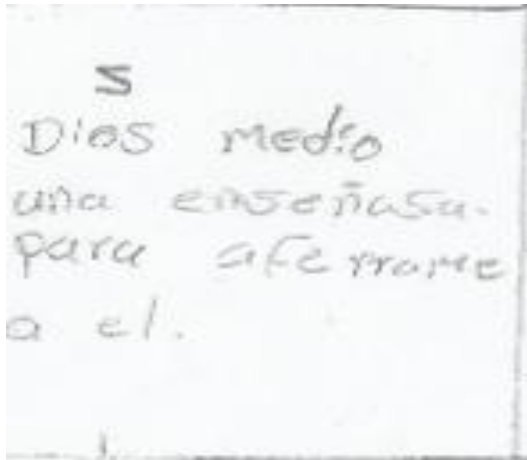 5
Dios medio
una enseñasa.
para aferrame
a el.